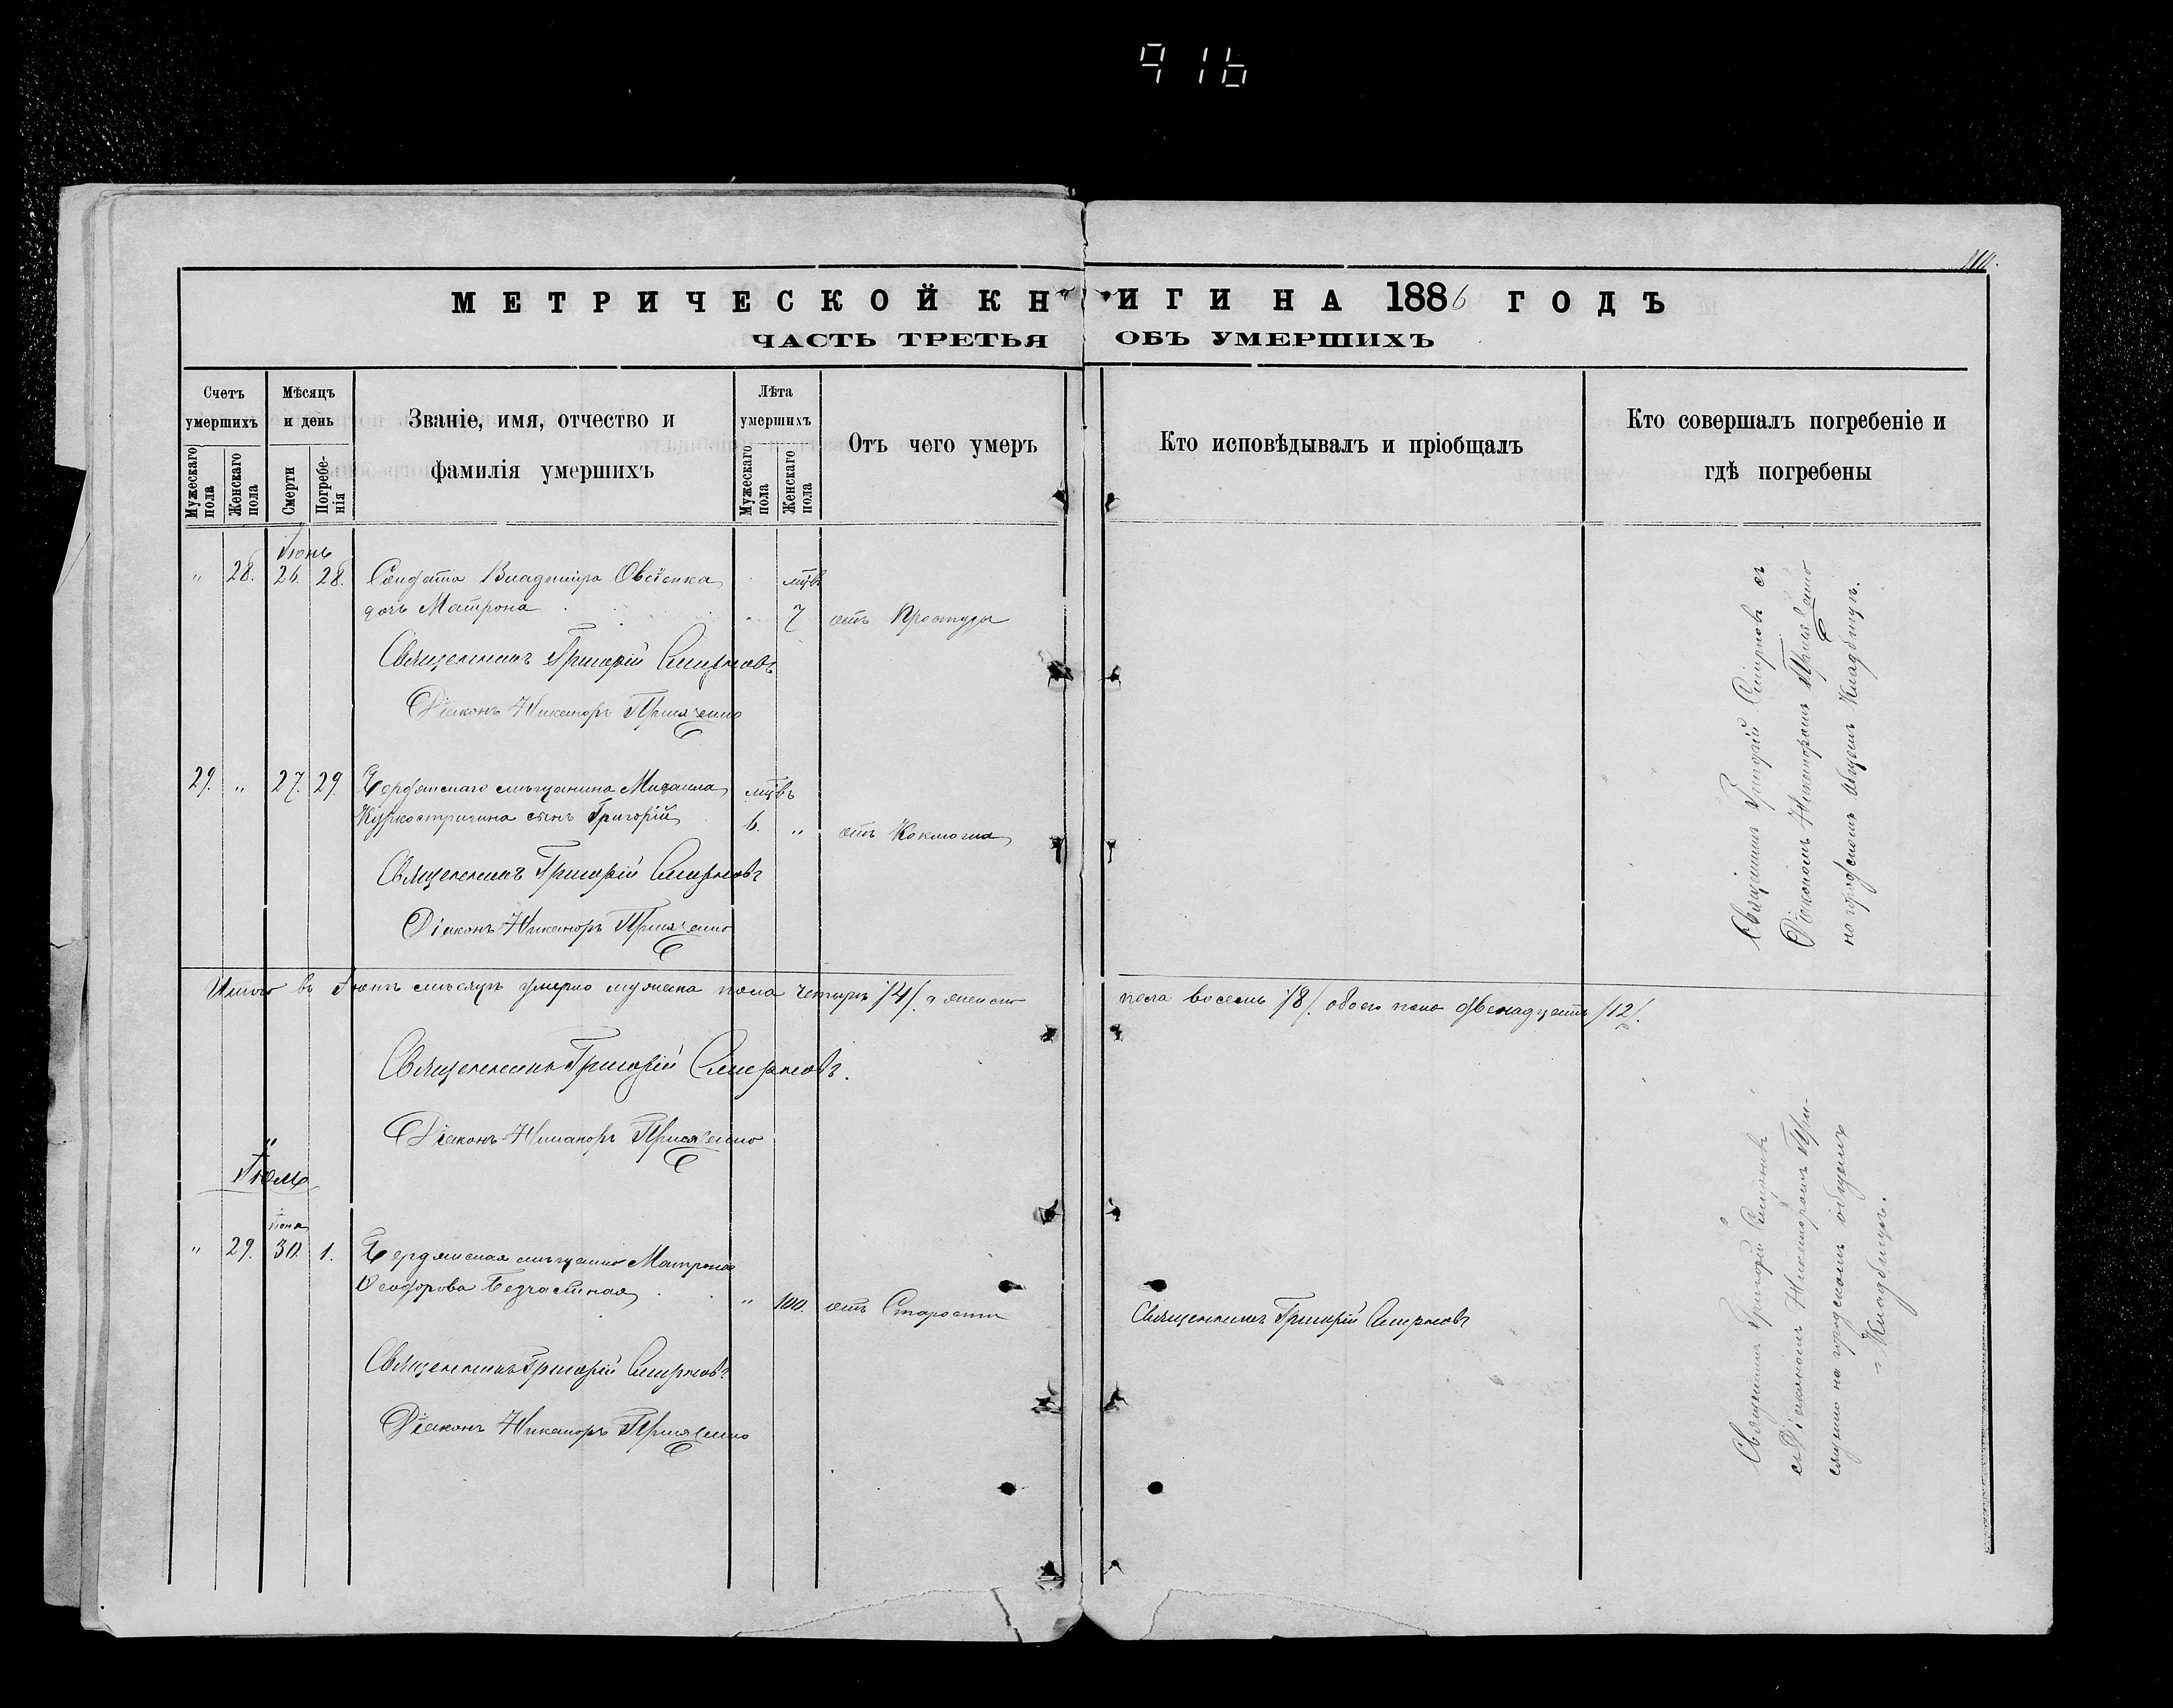 916
МЕТРИЧЕСКОЙ КНИГИ НА 1886 ГОДЪ
ЧАСТЬ ТРЕТЬЯ ОБЪ УМЕРШИХЪ
Счетъ умершихъ
Мужескаго пола
Женскаго пола
Мѣсяцъ и день
Смерти
Погребе-
нія
Званіе, имя, отчество и
фамилія умершихъ
Лѣта умершихъ
Мужескаго пола
Женскаго пола
Отъ чего умеръ
Кто исповѣдывалъ и пріобщалъ
Кто совершалъ погребеніе и
гдѣ погребены
Іюнь
" 28. 26. 28. Солдата Владиміра Овсіенка
дочь Матрона " 7 отъ Простуды
Священникъ Григорій Смирновъ
Діаконъ Никаноръ Присяженко
Священникъ Григорій Смирновъ съ
Діакономъ Никаноромъ
на городскомъ общемъ Кладбищѣ.
29. " 27. 29. мѣщанина Михаила
сынъ Григорій 6. " отъ Коклюша
Священникъ Григорій Смирновъ
Діаконъ Никаноръ Присяженко
Итого въ Іюнѣ мѣсяцѣ умерло мужеска пола четыре /4/. а женска
пола восемь /8/. обоего пола двенадцать /12/.
Священникъ Григорій Смирновъ.
Діаконъ Никаноръ Присяженко
Іюль
Іюня
" 29. 30. 1. Бердянская мѣщанка Матрона
Ѳеодорова Безчастная " 100. отъ Старости
Священникъ Григорій Смирновъ
Священникъ Григорій Смирновъ
Діаконъ Никаноръ Присяженко
Священникъ Григорій Смирновъ
съ Діакономъ Никаноромъ При-
на городскомъ общемъ
Кладбищѣ.